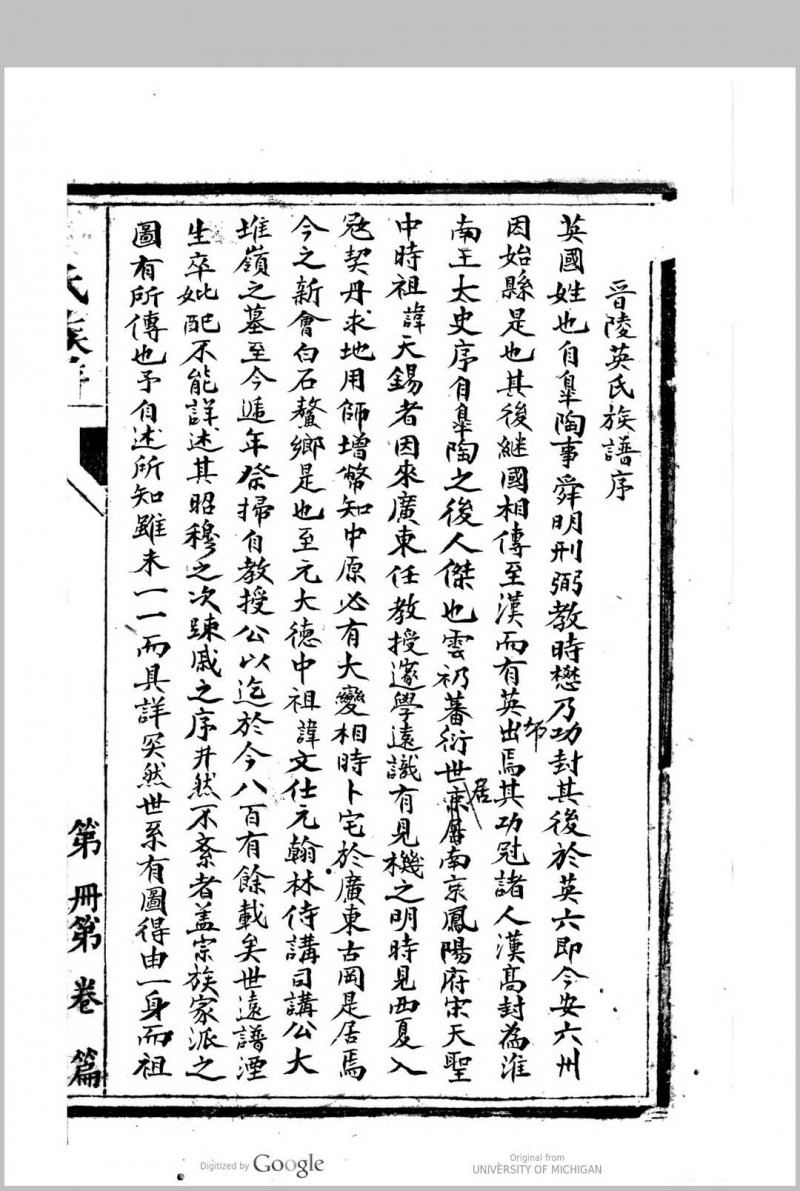 晉陵英氏族譜序
英國姓也自臯陶事舜明刑弼教時懋乃功封其後於英六即今安六州
因始縣是也其後継國相傳至漢而有英布出焉其功冠諸人漢高封為淮
南王太史序自臯陶之後人傑也雲礽蕃衍世居南京鳳陽府宋天聖
中時祖諱天錫者因來廣東任教授邃學遠識有見機之明時見西夏入
寇契丹求地用師增幣知中原必有大變相時卜宅於廣東古岡是居焉
今之新會白石鰲鄉是也至元大德中祖諱文仕元翰林侍講司講公大
堆嶺之墓至今遞年祭掃自教授公以迄於今八百有餘載矣世遠譜湮
生卒妣配不能詳述其昭穆之次踈戚之序井然不紊者盖宗族家派之
圖有所傳也予自述所知雖未一一而具詳然世系有圖得由一身而祖
氏族譜
第 冊第 卷 篇
Digitized by Google
Original from
UNIVERSITY OF MICHIGAN